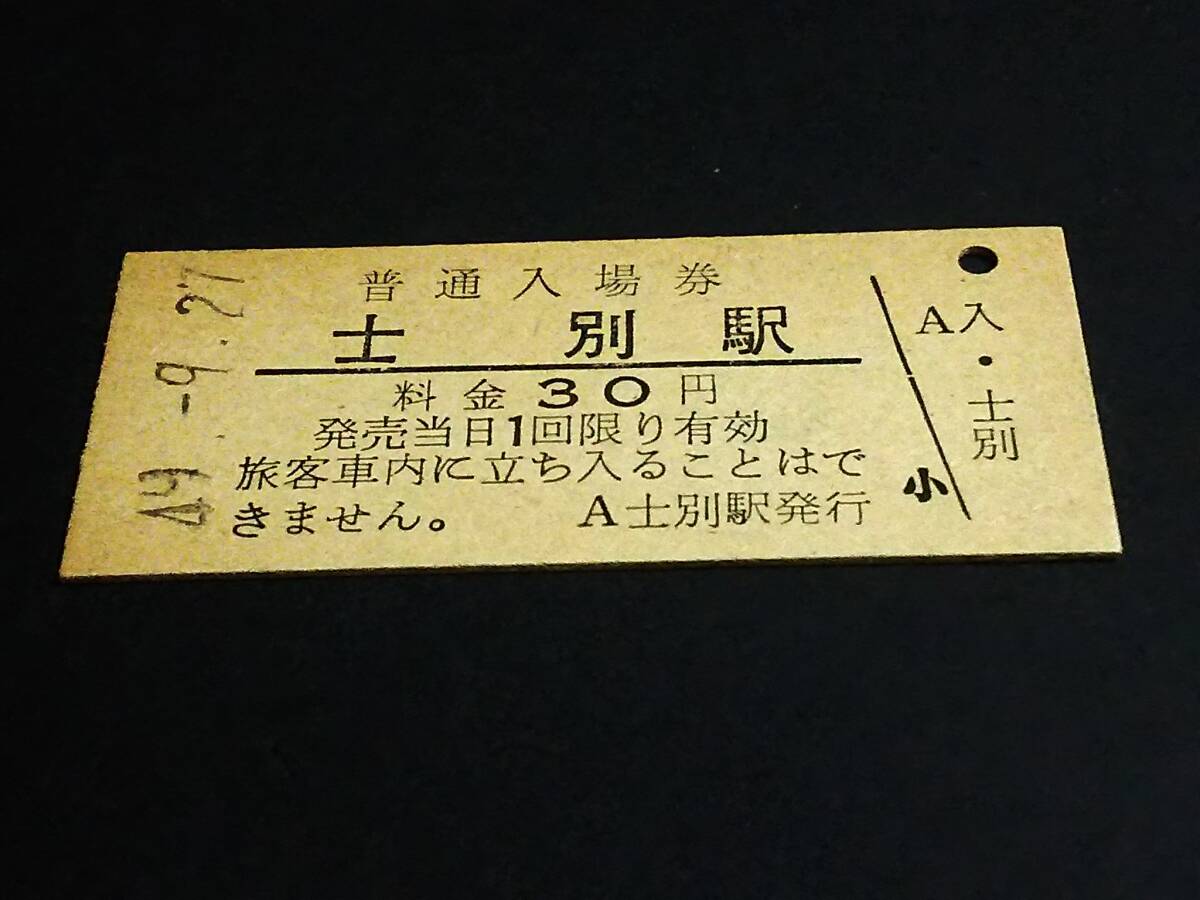 49.-9.27
普通入場券
士別駅
料金30円
発売当日1回限り有効
旅客車内に立ち入ることはで
きません。 A士別駅発行
小
A入・士別